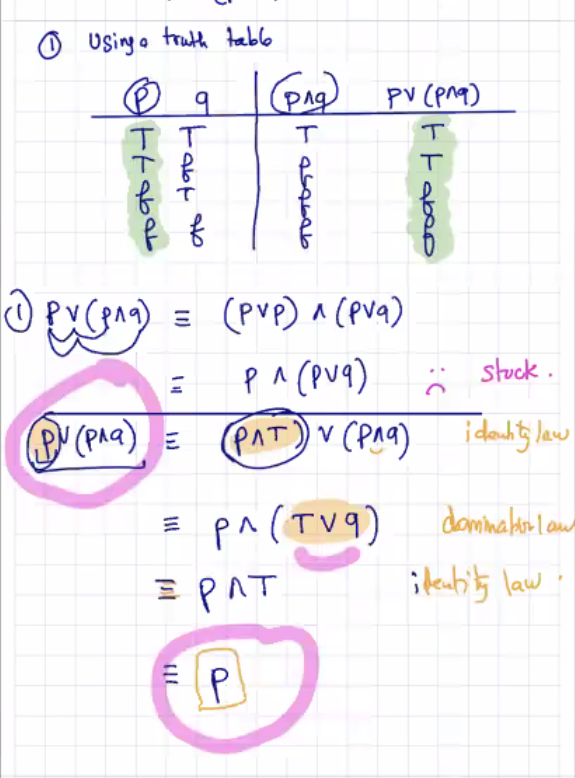 ① Using a truth table
p q (p∧q) p∨(p∧q)
T T T T
T f f T
f T f f
f f f f
① p∨(p∧q) ≡ (p∨p) ∧ (p∨q)
≡ p ∧ (p∨q) :( stuck.
p∨(p∧q) ≡ (p∧T) ∨ (p∧q) identity law
≡ p∧(T∨q) domination law
≡ p∧T identity law.
≡ p